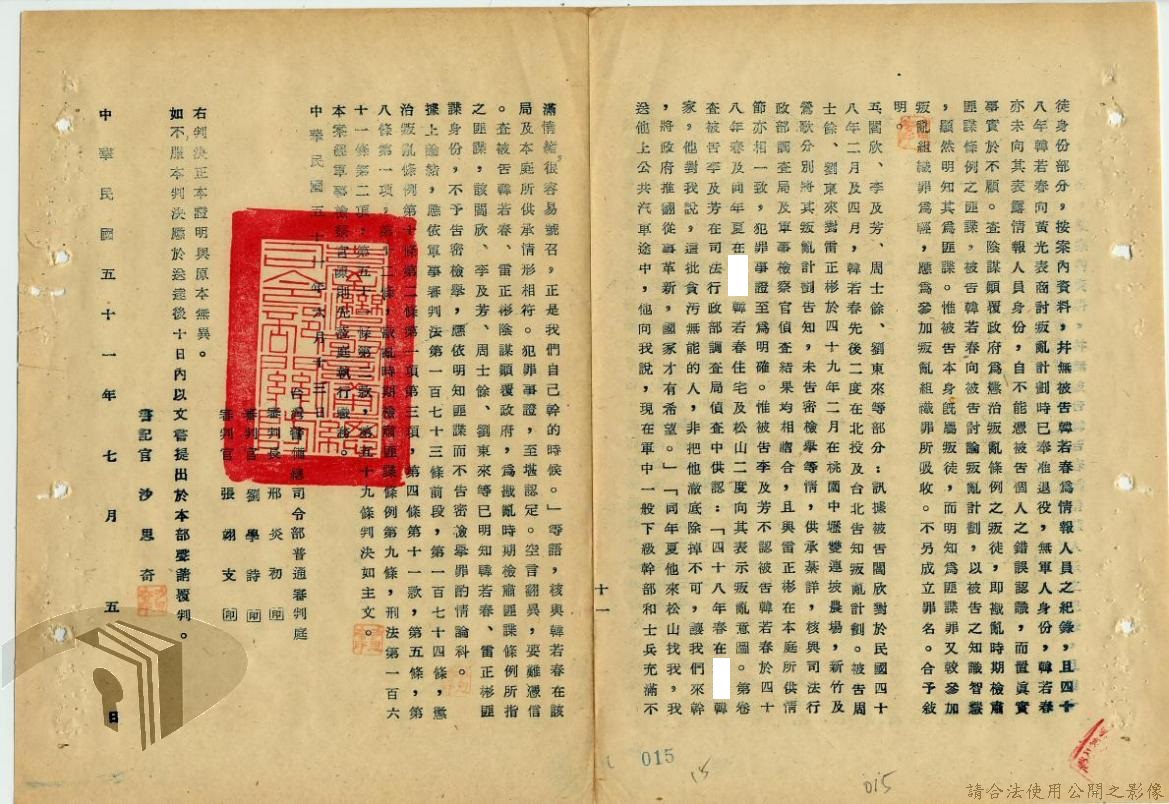 徒身份部分,按案內資料,幷無被告韓若春爲情報人員之紀錄,且四十
八年韓若春向黃光表商討叛亂計劃時已奉准退役,無軍人身份,韓若春
亦未向其表露情報人員身份,自不能憑被告個人之錯誤認識,而置眞實
事實於不顧。查陰謀顚覆政府爲懲治叛亂條例之叛徒,即戡亂時期檢肅
匪諜條例之匪諜,被告韓若春向被告討論叛亂計劃,以被告之知識智慧
,顯然明知其爲匪諜。惟被告本身旣屬叛徒,而明知爲匪諜罪又較參加
叛亂組織罪爲輕,應爲參加叛亂組織罪所吸收。不另成立罪名。合予敍
明。
五閻欣、李及芳、周士餘、劉東來等部分:訊據被告閻欣對於民國四十
八年二月及四月,韓若春先後二度在北投及台北告知叛亂計劃。被告周
士餘、劉東來對雷正彬於四十九年二月在桃園中壢雙連坡農場,新竹及
鶯歌分別將其叛亂計劃告知,未告密檢舉等情,供承綦詳,核與司法行
政部調查局及軍事檢察官偵查結果均相脗合,且與雷正彬在本庭所供情
節亦相一致,犯罪事證至爲明確。惟被告李及芳不認被告韓若春於四十
八年春及同年夏在 韓若春住宅及松山二度向其表示叛亂意圖。第卷
查被告李及芳在司法行政部調查局偵查中供認:「四十八年春在 韓
家,他對我說,這批貪污無能的人,非把他澈底除掉不可,讓我們來幹
,將政府推翻從事革新,國家才有希望。」「同年夏他來松山找我,我
送他上公共汽車途中,他向我說,現在軍中一般下級幹部和士兵充滿不
十一
滿情緒,很容易號召,正是我們自己幹的時候。」等語,核與韓若春在該
局及本庭所供承情形相符。犯罪事證,至堪認定。空言翻異,要難憑信
。查被告韓若春、雷正彬陰謀顚覆政府,爲戡亂時期檢肅匪諜條例所指
之匪諜,該閻欣、李及芳、周士餘、劉東來等已明知韓若春、雷正彬匪
諜身份,不予告密檢舉,應依明知匪諜而不告密檢舉罪酌情論科。
據上論結,應依軍事審判法第一百七十三條前段,第一百七十四條,懲
治叛亂條例第十條第二條第一項第三項,第四條第十一款,第五條,第
八條第一項,第十二條,戡亂時期檢肅匪諜條例第九條,刑法第一百六
十一條第二項,第五十七條第三款,第五十九條判決如主文。
本案經軍事檢察官 到庭執行職務。
中華民國五十一年六月十三日
台灣警備總司令部普通審判庭
審判長 邢炎初 印
審判官 劉學詩 印
審判官 張翊支 印
右判決正本證明與原本無異。
如不服本判決應於送達後十日內以文書提出於本部聲請覆判。
書記官 沙思奇
中華民國五十一年七月五日
015
15
015
請合法使用公開之影像